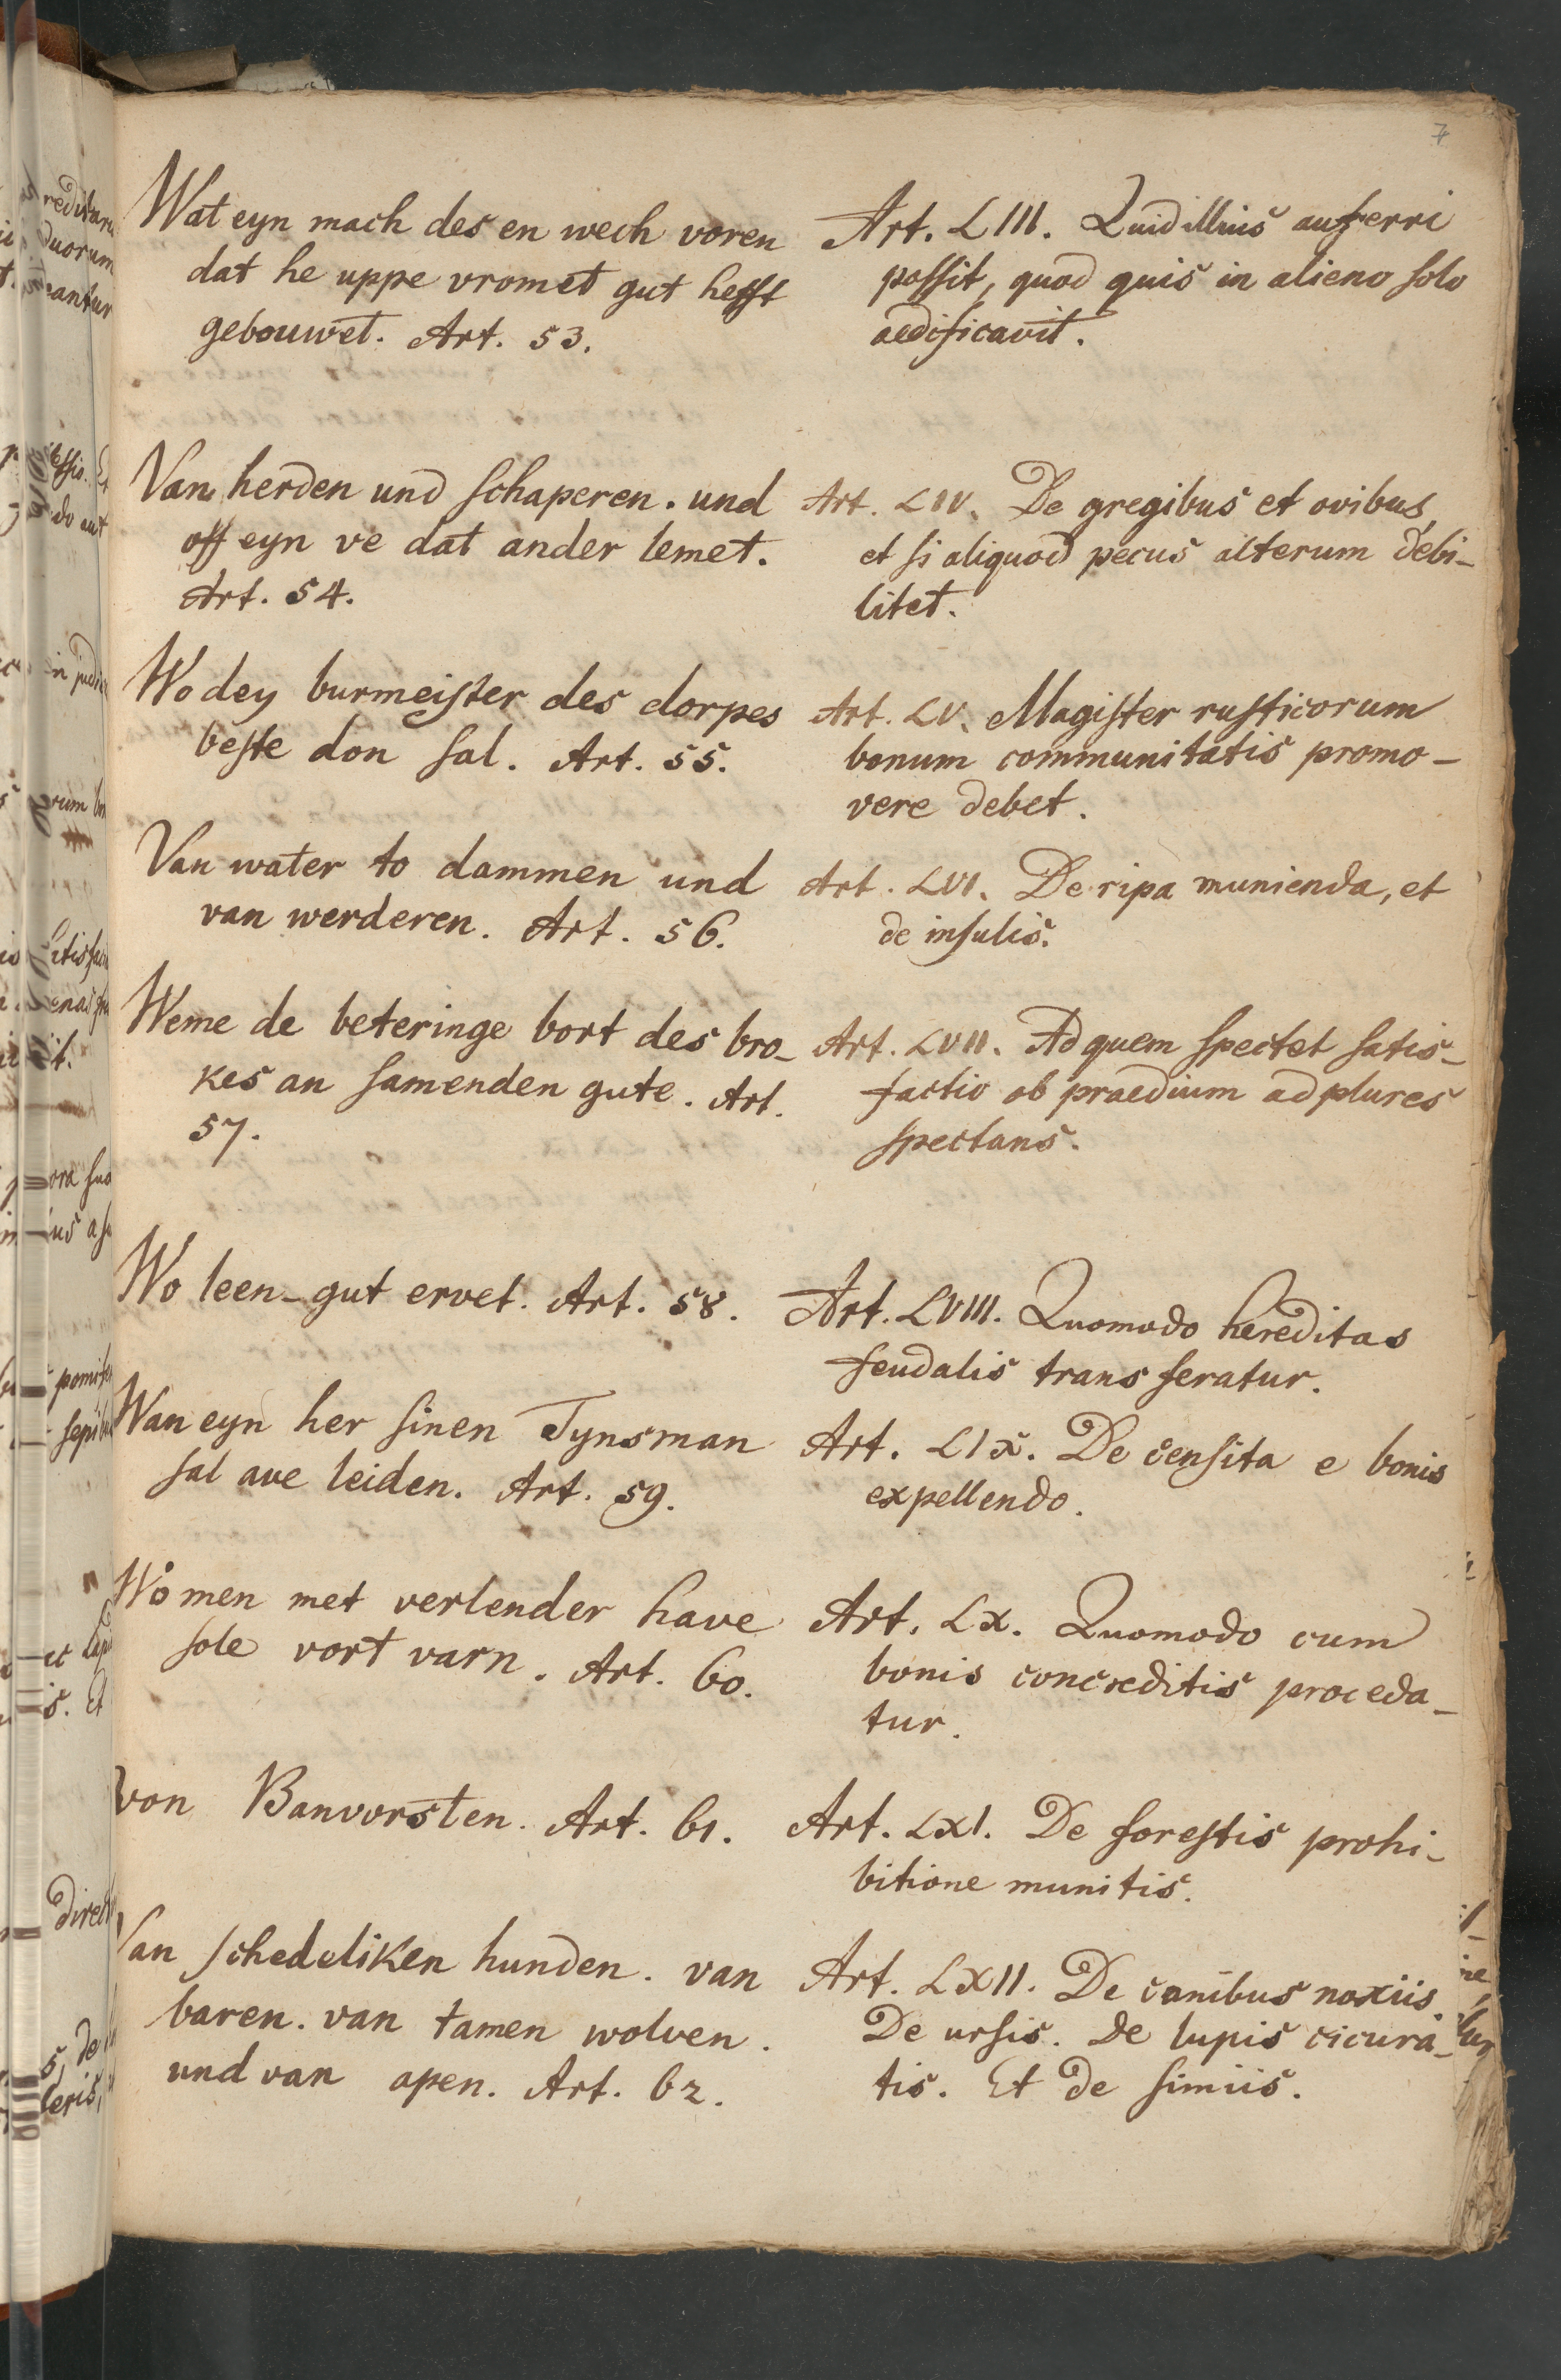 7
Wat eyn mach des en wech voren
dat he uppe vromet gut hefft
gebouwet. Art. 53.
Art. LIII. Quid illius auferri
possit, quod quis in alieno solo
aedificavit.
Van herden und schaperen. und
off eyn ve dat ander lemet.
Art. 54.
Art. LIV. De gregibus et ovibus,
et si aliquod pecus alterum debi-
litet.
Wo dey burmeister des dorpes
beste don sal. Art. 55.
Art. LV. Magister rusticorum
bonum communitatis promo-
vere debet.
Van water to dammen und
van werderen. Art. 56.
Art. LVI. De ripa munienda, et
de insulis.
Weme de beteringe bort des bro-
kes an samenden gute. Art.
57.
Art. LVII. Ad quem spectet satis-
factio ob praedium ad plures
spectans.
Wo leen-gut ervet. Art. 58.
Art. LVIII. Quomodo hereditas
feudalis transferatur.
Wan eyn her sinen Tynsman
sal ave leiden. Art. 59.
Art. LIX. De censita e bonis
expellendo.
Wo men met verlender have
sole vort varn. Art. 60.
Art. LX. Quomodo cum
bonis concreditis proceda-
tur.
von Banvorsten. Art. 61.
Art. LXI. De forestis prohi-
bitione munitis.
Van schedeliken hunden. van
baren. van tamen wolven.
und van apen. Art. 62.
Art. LXII. De canibus noxiis.
De ursis. De lupis cicura-
tis. Et de simiis.